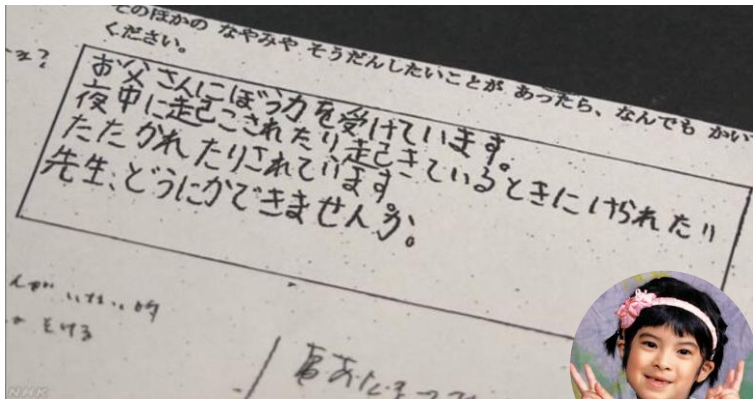 そのほかの なやみや そうだんしたいことが あったら、なんでも かい
ください。
お父さんにぼう力を受けています。
夜中に起こされたり起きているときにけられたり
たたかれたりされています。
先生、どうにかできませんか。
NHK